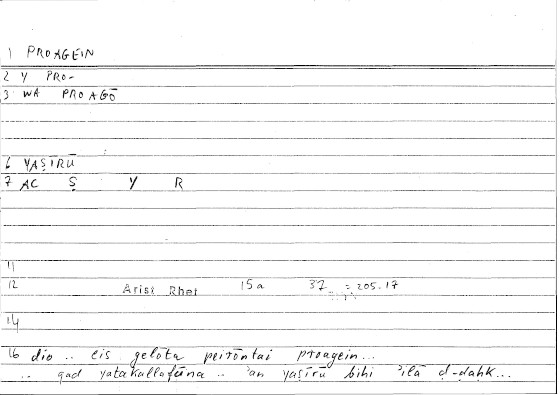 1 PROAGEIN
2 Y PRO-
3 WA PROAGŌ
6 YAṢĪRŪ
7 AC Ṣ Y R
11
12 Arist Rhet 15a 37 = 205.17
14
16 dio .. eis gelōta peirōntai proagein...
.. qad yatakallafūna .. ʾan yaṣīrū bihi ʾilā ḍ-ḍaḥk...